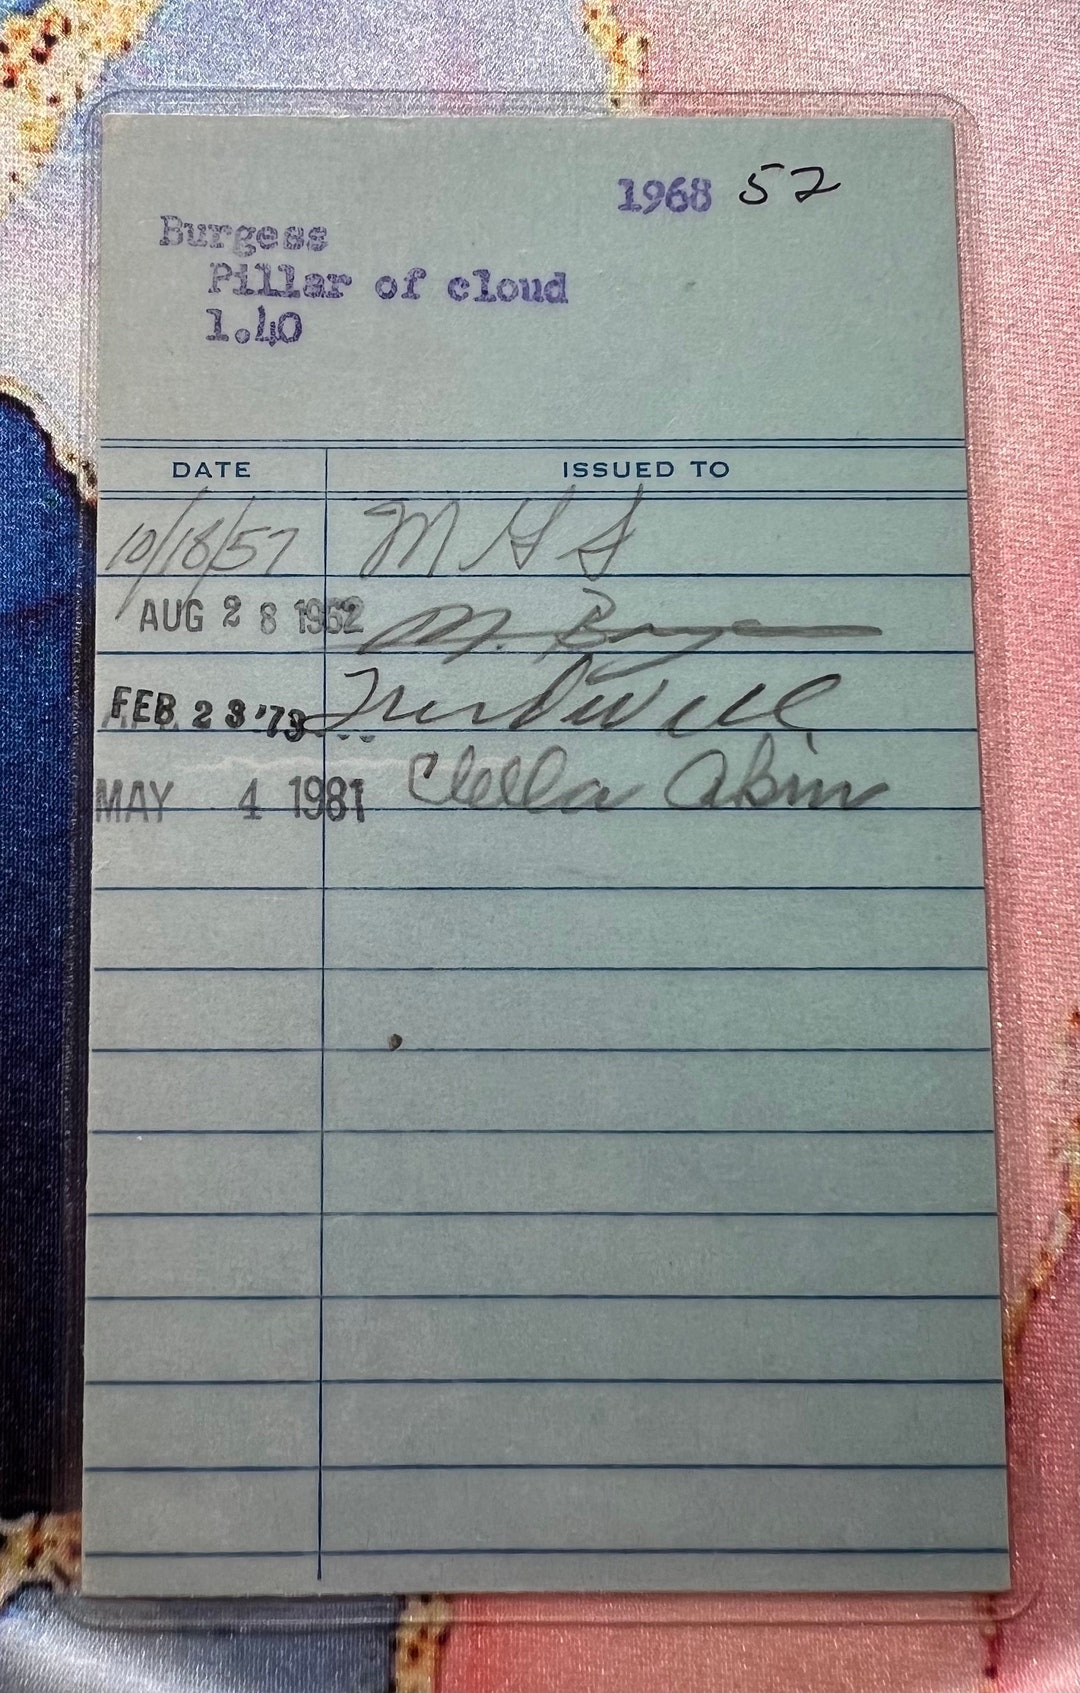 1968 52
Burgess
Pillar of cloud
1.40
DATE ISSUED TO
10/18/57 M G S
AUG 28 1962 M.
FEB 23 '73
MAY 4 1981 Clella Akin